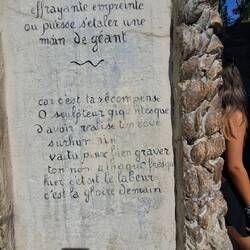 effrayante empreinte
ou puisse s'etaler une
main de géant
car c'est ta récompense
O sculpteur gigantesque
d'avoir réalisé un
surhumain
va tu peux bien graver
ton nom presque
hier c'etait le labeur
c'est la gloire demain